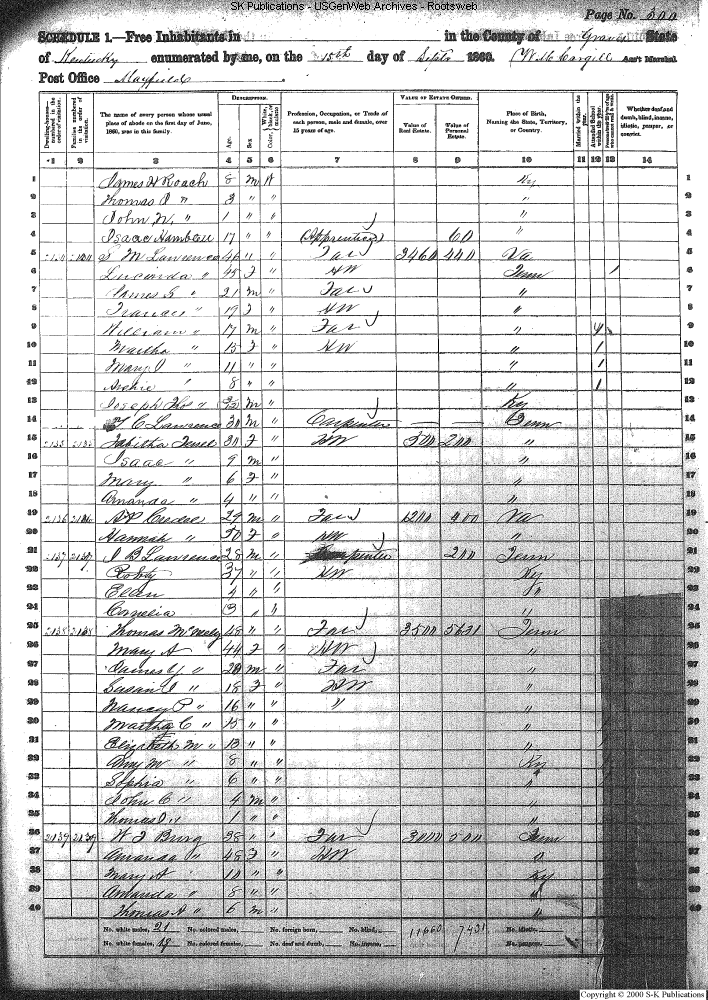 SK Publications - USGenWeb Archives - Rootsweb
Page No. 500
SCHEDULE 1.—Free Inhabitants in in the County of Graves State
of Kentucky enumerated by me, on the 15th day of Septr 1860. Ass't Marshal
Post Office Mayfield
Dwelling-houses— numbered in the order of visitation. Families numbered in the order of visitation. The name of every person whose usual place of abode on the first day of June, 1860, was in this family. Description. Age. Sex. Color, White, black, or mulatto. Profession, Occupation, or Trade of each person, male and female, over 15 years of age. Value of Estate Owned. Value of Real Estate. Value of Personal Estate. Place of Birth, Naming the State, Territory, or Country. Married within the year. Attended School within the year. Whether deaf and dumb, blind, insane, idiotic, pauper, or convict.
1 2 3 4 5 6 7 8 9 10 11 12 13 14
1 James H Roach 8 M W Ky 1
2 Thomas J " 3 " " " 2
3 John N. " 1 " " " 3
4 Isaac 17 " " (Apprentice) 60 " 4
5 S M Lawrence 46 " " Far 3460 440 Va 5
6 Lucinda " 45 F " HW Tenn 1 6
7 James S " 21 M " Far " 7
8 Frances " 19 F " HW " 8
9 William " 17 M " Far " 9
10 Martha " 15 F " HW " 1 10
11 Mary J " 11 " " " 1 11
12 " 8 " " " 1 12
13 Joseph Tho " M " Ky 13
14 C Lawrence 30 M " Carpenter — — Tenn 14
15 Tabitha 30 F " HW 500 200 " 15
16 Isaac " 9 M " " 16
17 Mary " 6 F " " 17
18 Amanda " 4 " " " 18
19 2136 2136 29 M " Far 1200 400 Va 19
20 Hannah " 50 F " HW " 20
21 2137 2137 J B Lawrence 28 M " Carpenter 200 Tenn 21
22 37 " " HW Ky 22
23 Ellen 4 " " " 23
24 Cornelia 3 " " " 24
25 2138 2138 Thomas McNeely 48 " " Far 3500 5631 Tenn 25
26 Mary A 44 F " HW " 26
27 James Y " 20 M " Far " 27
28 Susan J " 18 F " HW " 28
29 Nancy P " 16 " " " " 29
30 Martha C " 15 " " " 30
31 Elizabeth M " 13 " " " 31
32 Amy M " 8 " " Ky 32
33 Sophia " 6 " " " 33
34 John C " 4 M " " 34
35 Thomas J " 1 " " " 35
36 2139 2139 W J 38 " " Far 3000 500 Tenn 36
37 Amanda " 48 F " HW " 37
38 Mary A " 10 " " Ky 38
39 Amanda " 8 " " " 39
40 Thomas A " 6 M " " 40
No. white males, 21 No. colored males, No. foreign born, No. blind, 11660 7431 No. idiotic,
No. white females, 19 No. colored females, No. deaf and dumb, No. insane, No. paupers,
Copyright © 2000 S-K Publications